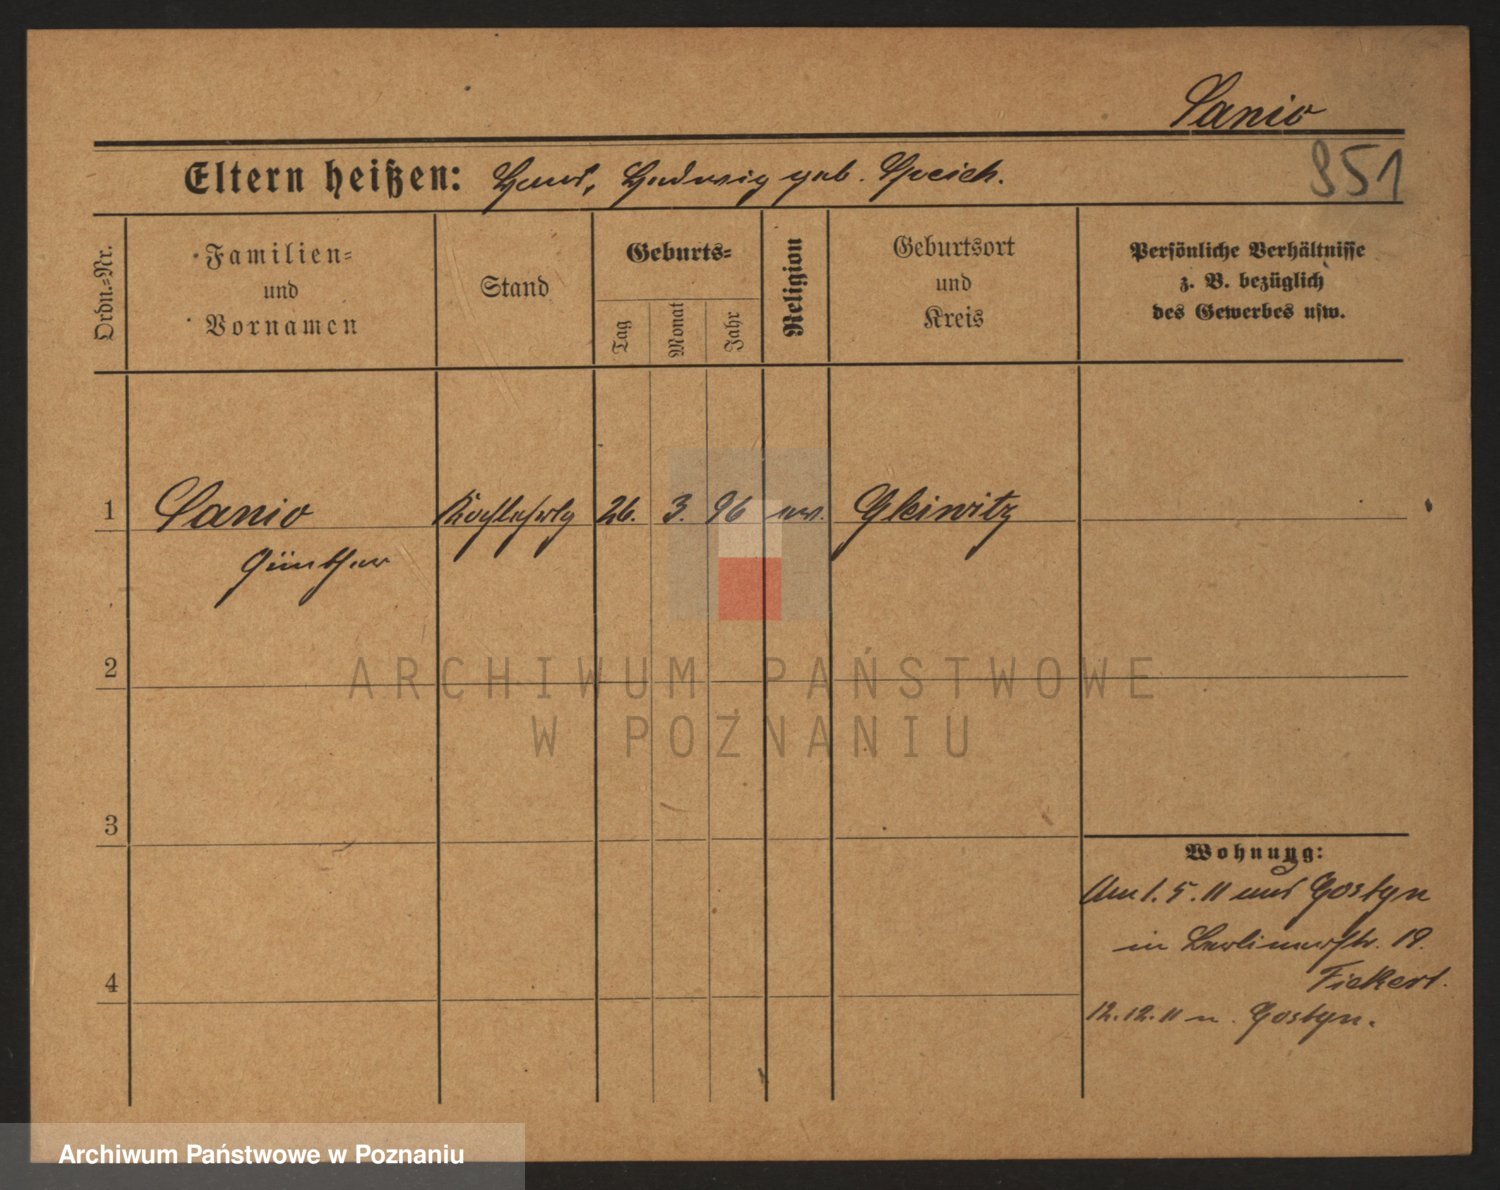 Sanio
851
Eltern heißen: Hans, Hedwig geb. Speich.
Ordn.-Nr.
Familien- und Vornamen
Stand
Geburts-
Tag
Monat
Jahr
Religion
Geburtsort und Kreis
Persönliche Verhältnisse
z. B. bezüglich
des Gewerbes usw.
1 Sanio Kochlehrlg 26. 3. 96 ev. Gleiwitz
Günther
2
3
4
Wohnung:
Am 1.5.11 aus Gostyn
in Berlinerstr. 19.
Fickert.
12.12.11 n. Gostyn.
ARCHIWUM PAŃSTWOWE
W POZNANIU
Archiwum Państwowe w Poznaniu